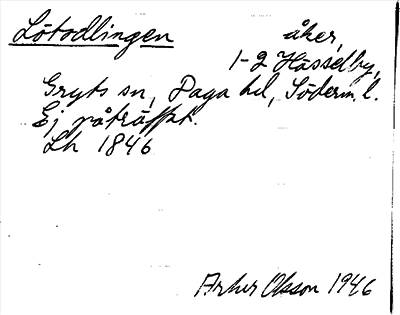 Lötodlingen åker,
1-2 Hässelby,
Gryts sn, Daga hd, Söderm. l.
Ej påträffat.
Lh 1846
Artur Olsson 1946